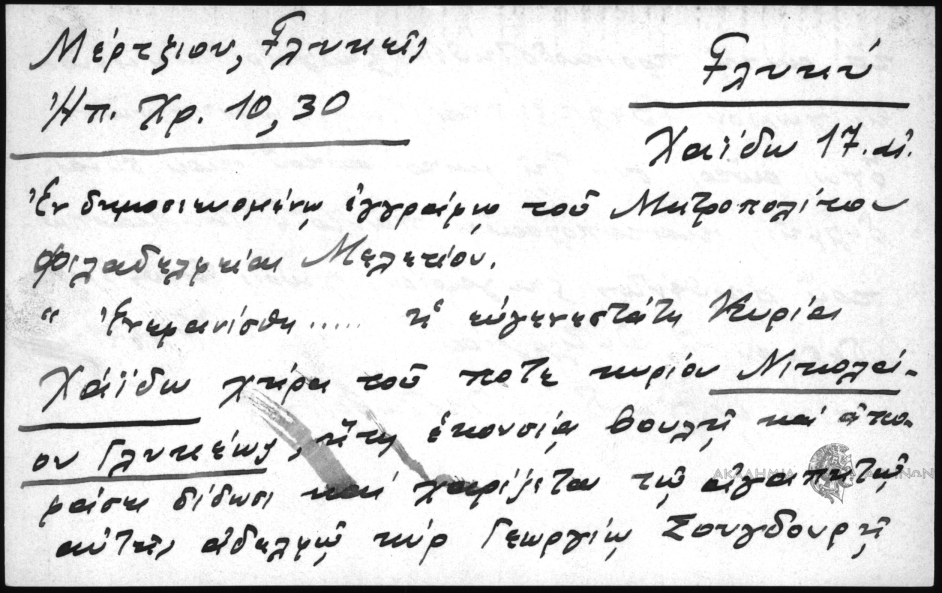 Μέρτζιου, Γλυκεῖς
Ἠπ. Χρ. 10, 30
Γλυκύ
Χάϊδω 17. αἰ.
Ἐν δημοσιευομένῳ ἐγγράφῳ τοῦ Μητροπολίτου
Φιλαδελφείας Μελετίου.
" Ἐνεφανίσθη ..... ἡ εὐγενεστάτη Κυρία
Χάϊδω χήρα τοῦ ποτε κυρίου Νικολά-
ου Γλυκέως, ἥτις ἑκουσίᾳ βουλῇ καὶ
δίδωσι καὶ χαρίζεται τῷ ἀγαπητῷ
αὐτῆς ἀδελφῷ κύρ Γεωργίῳ Σουγδουρῇ
ΑΚΑΔΗΜΙΑ